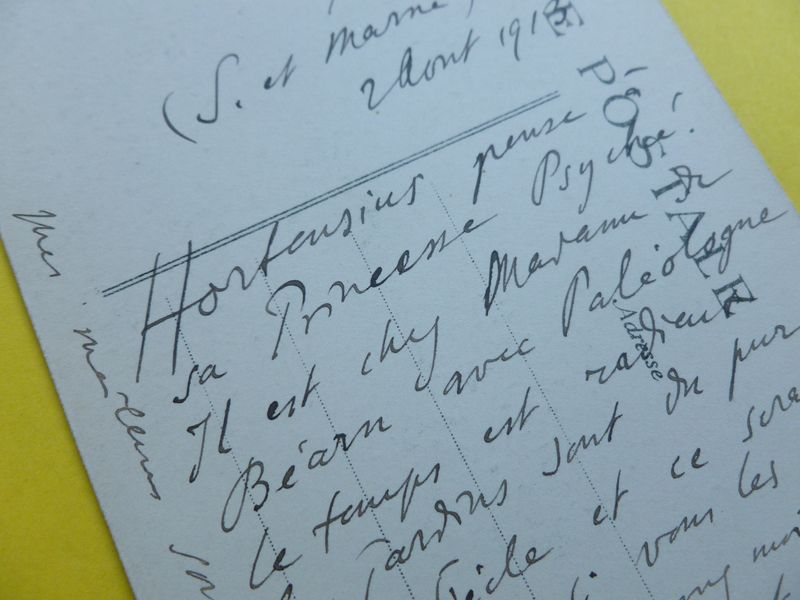 (S. et Marne)
2 Aout 191
E POSTALE
Adresse
Hortensius pense
sa Princesse Psyché!
Il est chez Madame de
Béarn avec Paléologue
le temps est radieux
Jardins sont du pur
Siècle et ce sera
vous les
mes meilleurs